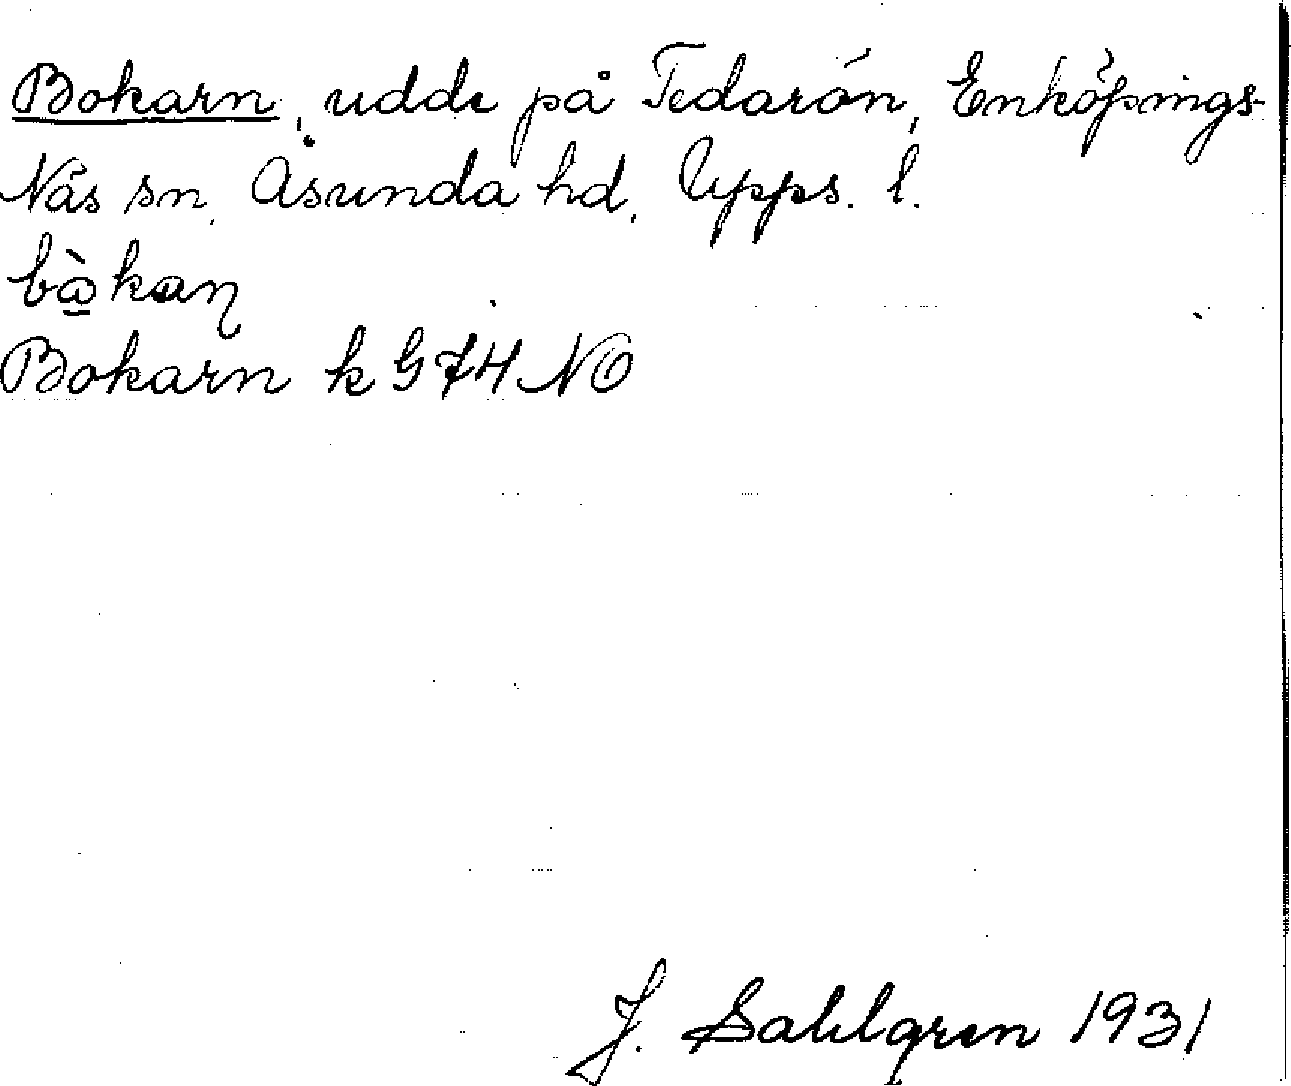 Bokarn, udde på Tedarön, Enköpings-
Näs sn, Åsunda hd, Upps. l.
bɷ̀kaɳ
Bokarn k G 74 NO
J. Sahlgren 1931